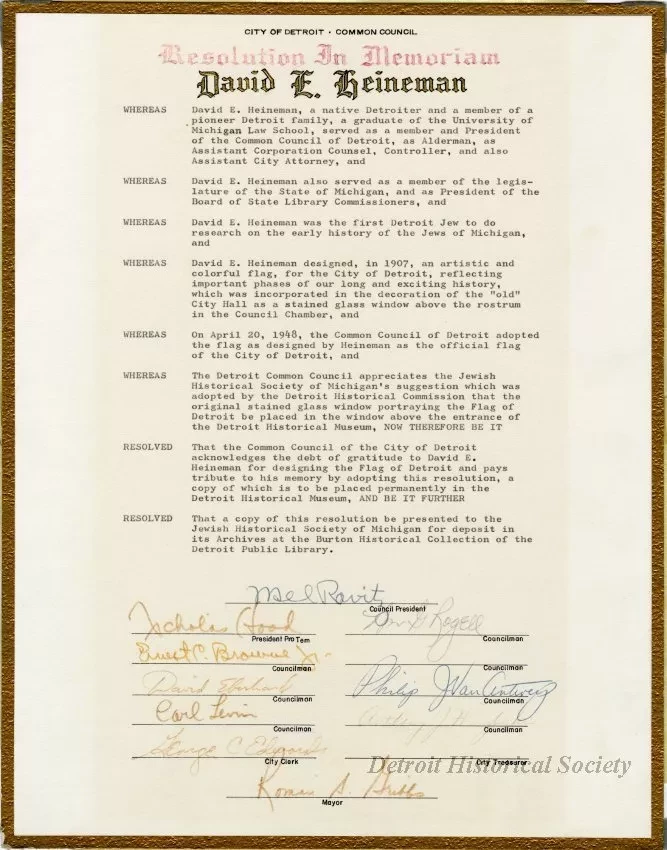 CITY OF DETROIT • COMMON COUNCIL
Resolution In Memoriam
David E. Heineman
WHEREAS David E. Heineman, a native Detroiter and a member of a
pioneer Detroit family, a graduate of the University of
Michigan Law School, served as a member and President
of the Common Council of Detroit, as Alderman, as
Assistant Corporation Counsel, Controller, and also
Assistant City Attorney, and
WHEREAS David E. Heineman also served as a member of the legis-
lature of the State of Michigan, and as President of the
Board of State Library Commissioners, and
WHEREAS David E. Heineman was the first Detroit Jew to do
research on the early history of the Jews of Michigan,
and
WHEREAS David E. Heineman designed, in 1907, an artistic and
colorful flag, for the City of Detroit, reflecting
important phases of our long and exciting history,
which was incorporated in the decoration of the "old"
City Hall as a stained glass window above the rostrum
in the Council Chamber, and
WHEREAS On April 20, 1948, the Common Council of Detroit adopted
the flag as designed by Heineman as the official flag
of the City of Detroit, and
WHEREAS The Detroit Common Council appreciates the Jewish
Historical Society of Michigan's suggestion which was
adopted by the Detroit Historical Commission that the
original stained glass window portraying the Flag of
Detroit be placed in the window above the entrance of
the Detroit Historical Museum, NOW THEREFORE BE IT
RESOLVED That the Common Council of the City of Detroit
acknowledges the debt of gratitude to David E.
Heineman for designing the Flag of Detroit and pays
tribute to his memory by adopting this resolution, a
copy of which is to be placed permanently in the
Detroit Historical Museum, AND BE IT FURTHER
RESOLVED That a copy of this resolution be presented to the
Jewish Historical Society of Michigan for deposit in
its Archives at the Burton Historical Collection of the
Detroit Public Library.
Mel Ravitz
Council President
Nicholas Hood
President Pro Tem
Rogell
Councilman
Ernest C. Browne Jr.
Councilman
Philip J. Van Antwerp
Councilman
David Eberhard
Councilman
Carl Levin
Councilman
Councilman
George C. Edwards
City Clerk
City Treasurer
Detroit Historical Society
Roman S. Gribbs
Mayor